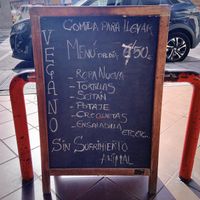 COMIDA PARA LLEVAR
MENÚ DEL DÍA 7'50€
VEGANO
- ROPA NUEVA
- TORTILLAS
- SEITÁN
- POTAJE
- CROQUETAS
- ENSALADILLA
ETC, ETC..
SIN SUFRIMIENTO
ANIMAL